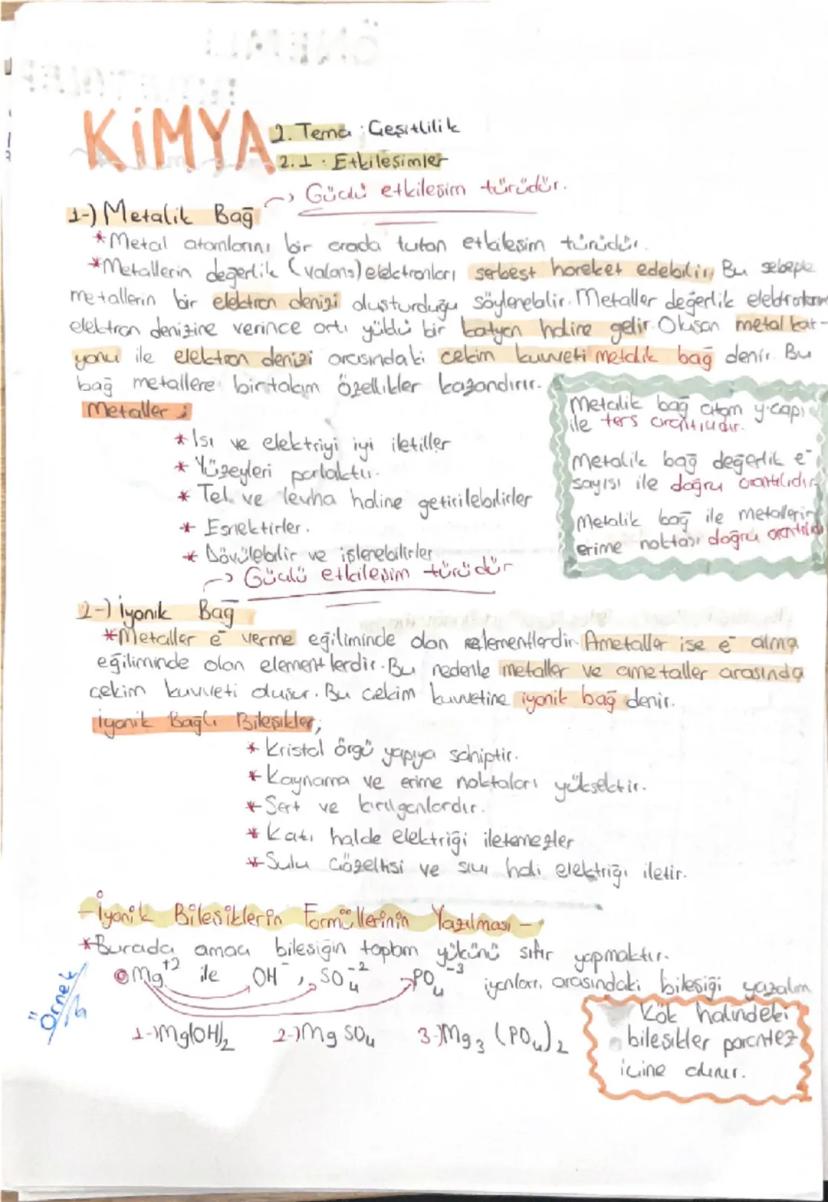 KİMYA
2. Tema : Çeşitlilik
2.1 : Etkileşimler
→ Güçlü etkileşim türüdür.
1-) Metalik Bağ
*Metal atomlarını bir arada tutan etkileşim türüdür.
*Metallerin değerlik (valans) elektronları serbest hareket edebilir. Bu sebeple
metallerin bir elektron denizi oluşturduğu söylenebilir. Metaller değerlik elektronlarını
elektron denizine verince artı yüklü bir katyon haline gelir. Oluşan metal kat-
yonu ile elektron denizi arasındaki çekim kuvveti metalik bağ denir. Bu
bağ metallere birtakım özellikler kazandırır.
Metaller ;
* Isı ve elektriyi iyi iletiller
* Yüzeyleri parlaktır.
* Tel ve levha haline getirilebilirler
* Esnektirler.
* Dövülebilir ve işlenebilirler
Metalik bağ atom y.çapı
ile ters orantılıdır.
Metalik bağ değerlik e⁻
sayısı ile doğru orantılıdır
Metalik bağ ile metallerin
erime noktası doğru orantılıdır
→ Güçlü etkileşim türüdür
2-) İyonik Bağ
*Metaller e⁻ verme eğiliminde olan elementlerdir. Ametaller ise e⁻ alma
eğiliminde olan elementlerdir. Bu nedenle metaller ve ametaller arasında
çekim kuvveti oluşur. Bu çekim kuvvetine iyonik bağ denir.
İyonik Bağlı Bileşikler;
* Kristal örgü yapıya sahiptir.
* Kaynama ve erime noktaları yüksektir.
* Sert ve kırılganlardır.
* Katı halde elektriği iletemezler
* Sulu çözeltisi ve sıvı hali elektriği iletir.
- İyonik Bileşiklerin Formüllerinin Yazılması -
*Burada amaç bileşiğin toplam yükünü sıfır yapmaktır.
Örnek
Mg⁺² ile OH⁻, SO₄⁻² PO₄⁻³ iyonları arasındaki bileşiği yazalım
1-) Mg(OH)₂ 2-) MgSO₄ 3-) Mg₃(PO₄)₂
Kök halindeki
bileşikler parantez
içine alınır.